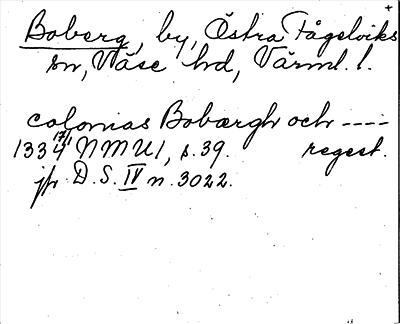 Boberg, by, Östra Fågelviks
sn, Väse hd, Värml. l.
colonias Bobærgh och ----
1334 17/1 NMU 1, s. 39. regest.
jfr D.S. IV n. 3022.